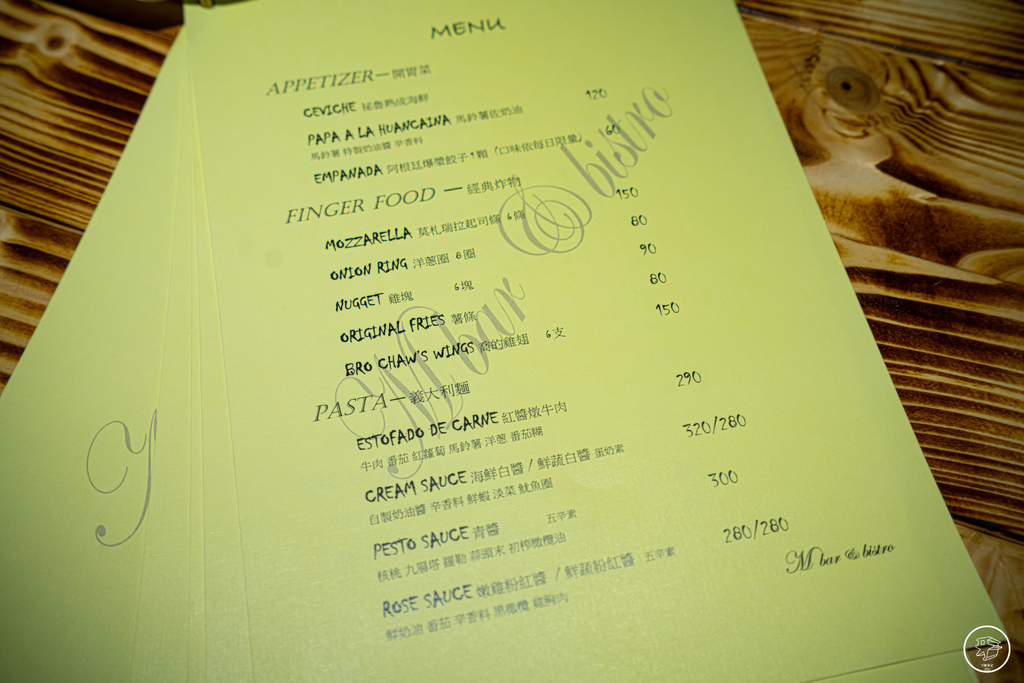 MENU
APPETIZER— 開胃菜
CEVICHE 祕魯熟成海鮮
PAPA A LA HUANCAINA 馬鈴薯佐奶油 120
馬鈴薯 特製奶油醬 辛香料
EMPANADA 阿根廷爆漿餃子1顆 (口味依每日限量) 60
FINGER FOOD — 經典炸物
MOZZARELLA 莫札瑞拉起司條 6條 150
ONION RING 洋蔥圈 8圈 80
NUGGET 雞塊 6塊 90
ORIGINAL FRIES 薯條 80
BRO CHAW'S WINGS 喬的雞翅 6支 150
PASTA— 義大利麵
ESTOFADO DE CARNE 紅醬燉牛肉 290
牛肉 番茄 紅蘿蔔 馬鈴薯 洋蔥 番茄糊
CREAM SAUCE 海鮮白醬 / 鮮蔬白醬 蛋奶素 320/280
自製奶油醬 辛香料 鮮蝦 淡菜 魷魚圈
PESTO SAUCE 青醬 五辛素 300
核桃 九層塔 羅勒 蒜頭末 初榨橄欖油
ROSE SAUCE 嫩雞粉紅醬 / 鮮蔬粉紅醬 五辛素 280/280
鮮奶油 番茄 辛香料 黑橄欖 雞胸肉
M bar & bistro
M bar & bistro